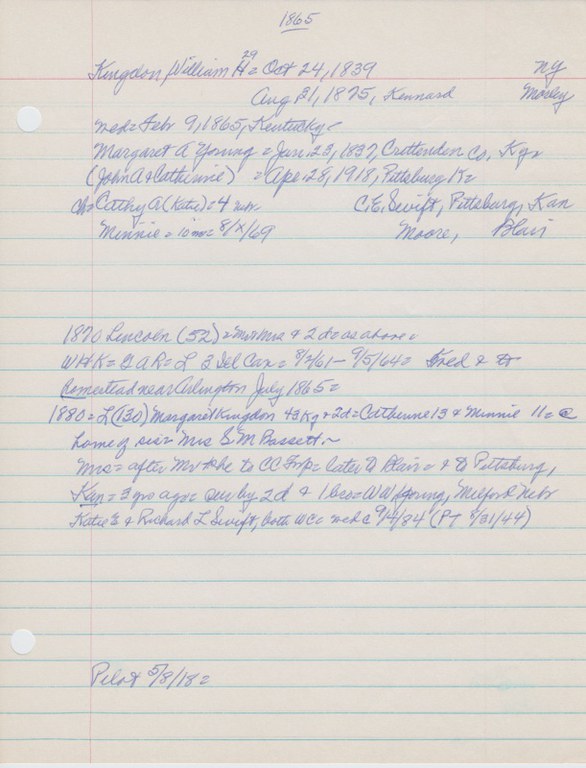 1865
29
Kingdon, William H = Oct 24, 1839 NY
Aug 21, 1875, Kennard Mosley
med = Febr 9, 1865, Kentucky =
Margaret A Young = Jan 23, 1837, Crettenden Co, Ky =
(John A & Catherine) = Apr 28, 1918, Pittsburg K =
ch = Cathy A (Katie) = 4 C.E. Swift, Pittsburg, Kan
Minnie = 10 mo = 8/X/69 Moore, Blair
1870 Lincoln (52) = Mr & Mrs & 2d = as above =
WHK = GAR = L 3 Del Cav = 8/2/61 - 9/5/64 = &
Homestead near Arlington July 1865 =
1880 = L (130) Margaret Kingdon 43 Ky & 2d = Catherine 13 & Minnie 11 = @
home of sis = Mrs S M Bassett. ~
Mrs = after Mr to CC Frp = later to Blair = & to Pittsburg,
Kan = 3 yrs ago = sur by 2d & 1 bro = WW Young, Milford Nebr
Katie S & Richard L Swift, both WC = med @ 9/4/84 (PT 8/31/44)
Pilot 5/8/18 =